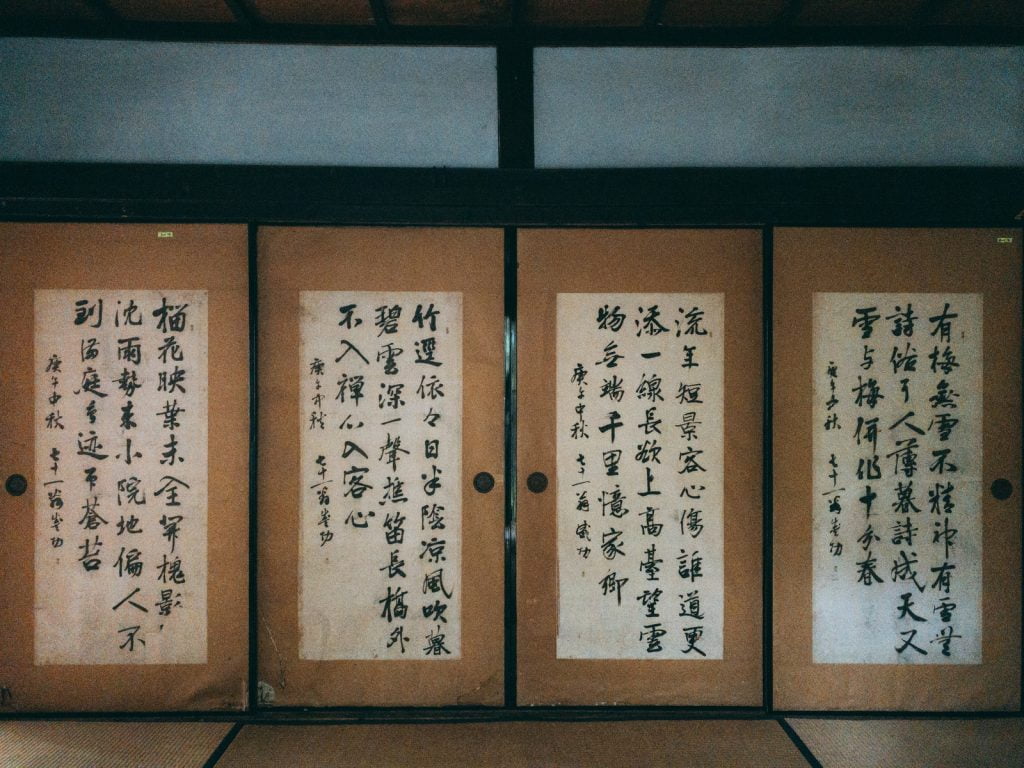 有梅無雪不精神有雪無
詩俗了人薄暮詩成天又
雪与梅併作十分春
庚午中秋 七十一翁
流年短景客心傷誰道更
添一線長欲上高臺望雲
物無端千里憶家鄉
庚午中秋 七十一翁
竹依々日半陰涼風吹暮
碧雲深一聲樵笛長橋外
不入禅心入客心
庚午中秋 七十一翁
榴花映葉未全開槐影
沈雨勢来小院地偏人不
到満庭鳥迹印蒼苔
庚午中秋 七十一翁